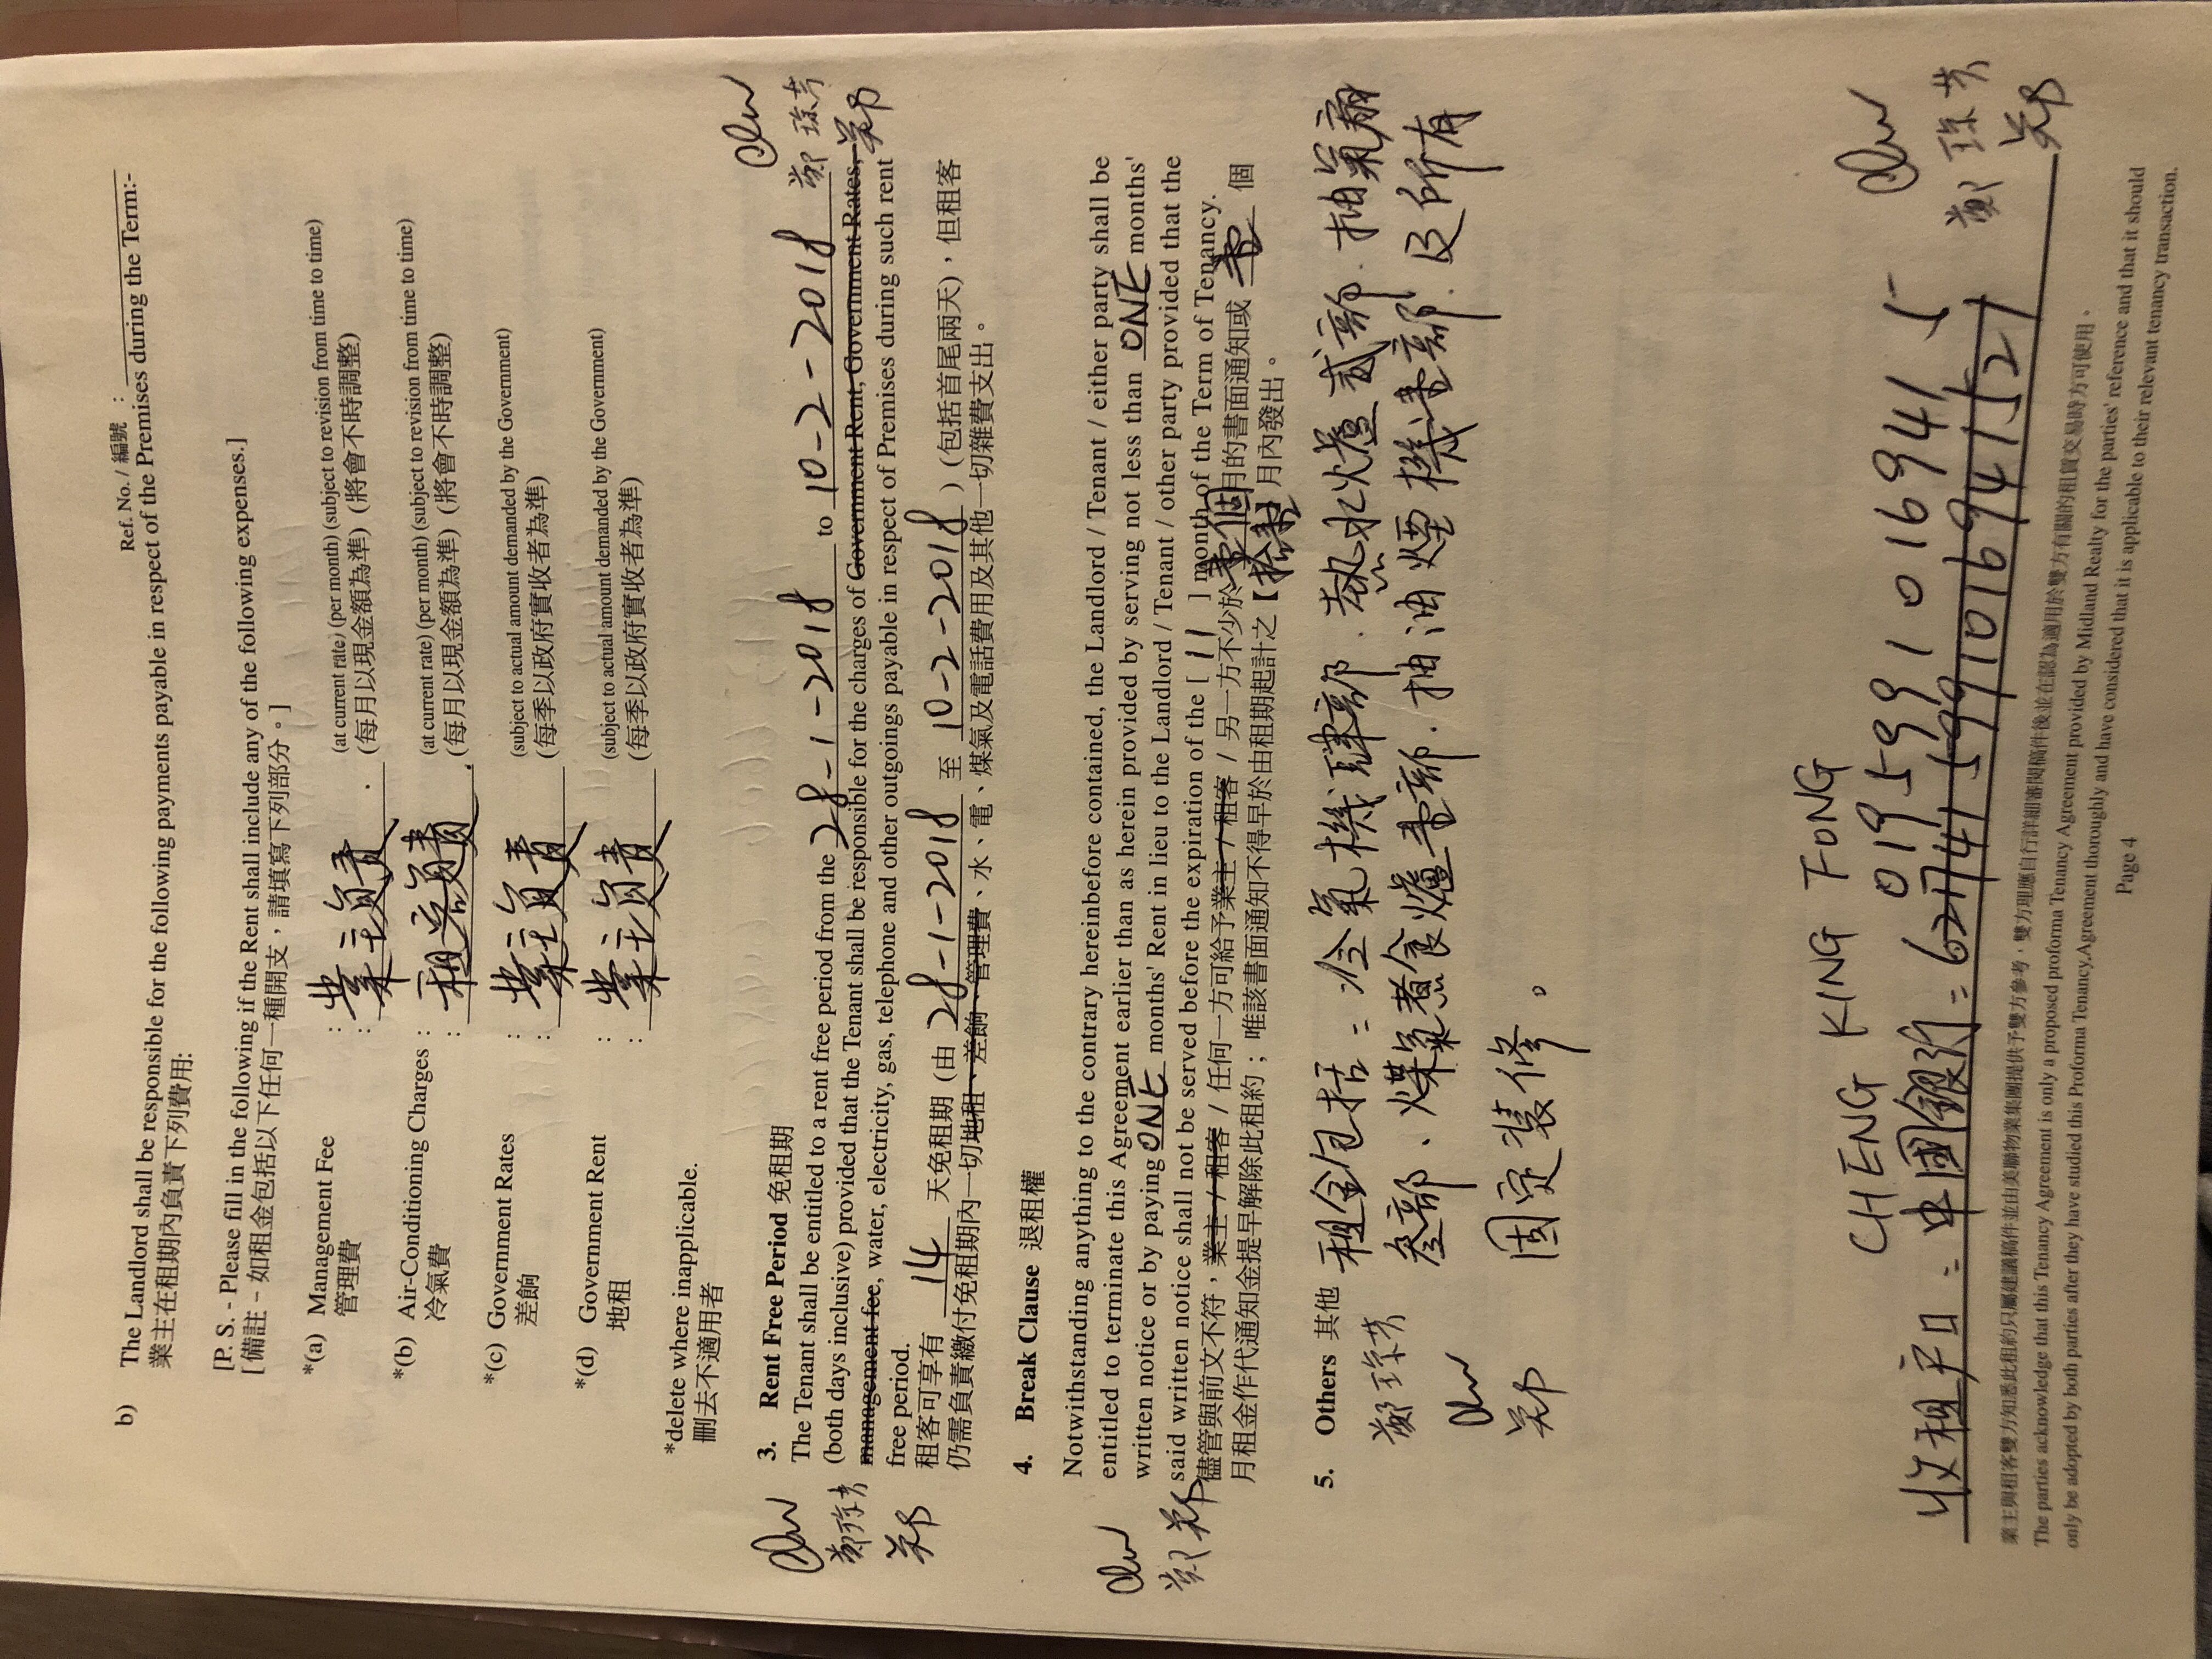 Ref. No. / 編號 :
b) The Landlord shall be responsible for the following payments payable in respect of the Premises during the Term:-
業主在租期內負責下列費用:
[P. S. - Please fill in the following if the Rent shall include any of the following expenses.]
[備註 - 如租金包括以下任何一種開支，請填寫下列部分。]
*(a) Management Fee : 業主負責 . (at current rate) (per month) (subject to revision from time to time)
管理費 : (每月以現金額為準) (將會不時調整)
*(b) Air-Conditioning Charges : 租客負責 (at current rate) (per month) (subject to revision from time to time)
冷氣費 : (每月以現金額為準) (將會不時調整)
*(c) Government Rates : 業主負責 (subject to actual amount demanded by the Government)
差餉 : (每季以政府實收者為準)
*(d) Government Rent : 業主負責 (subject to actual amount demanded by the Government)
地租 : (每季以政府實收者為準)
*delete where inapplicable.
刪去不適用者
3. Rent Free Period 免租期
The Tenant shall be entitled to a rent free period from the 28-1-2018 to 10-2-2018
(both days inclusive) provided that the Tenant shall be responsible for the charges of Government Rent, Government Rates,
management fee, water, electricity, gas, telephone and other outgoings payable in respect of Premises during such rent
free period.
租客可享有 14 天免租期 (由 28-1-2018 至 10-2-2018 ) (包括首尾兩天)，但租客
仍需負責繳付免租期內一切地租、差餉、管理費、水、電、煤氣及電話費用及其他一切雜費支出。
4. Break Clause 退租權
Notwithstanding anything to the contrary hereinbefore contained, the Landlord / Tenant / either party shall be
entitled to terminate this Agreement earlier than as herein provided by serving not less than ONE months'
written notice or by paying ONE months' Rent in lieu to the Landlord / Tenant / other party provided that the
said written notice shall not be served before the expiration of the [ 11 ] month of the Term of Tenancy.
儘管與前文不符，業主 / 租客 / 任何一方可給予業主 / 租客 / 另一方不少於壹個月的書面通知或 壹 個
月租金作代通知金提早解除此租約；唯該書面通知不得早於由租期起計之【拾壹月內發出。
5. Others 其他 租金包括 = 冷氣機肆部．熱水爐貳部．抽氣扇
叁部、煤氣煮食爐壹部．抽油煙機壹部．及所有
固定裝修。
鄭琼芳
鄭
CHENG KING FONG
019 5991 016941 5
收租戶口 = 中國銀行 =
鄭琼芳
鄭
業主與租客雙方知悉此租約只屬建議稿件並由美聯物業集團提供予雙方參考，雙方理應自行詳細審閱稿件後並在認為適用於雙方有關的租賃交易時方可使用。
The parties acknowledge that this Tenancy Agreement is only a proposed proforma Tenancy Agreement provided by Midland Realty for the parties' reference and that it should
only be adopted by both parties after they have studied this Proforma Tenancy Agreement thoroughly and have considered that it is applicable to their relevant tenancy transaction.
Page 4